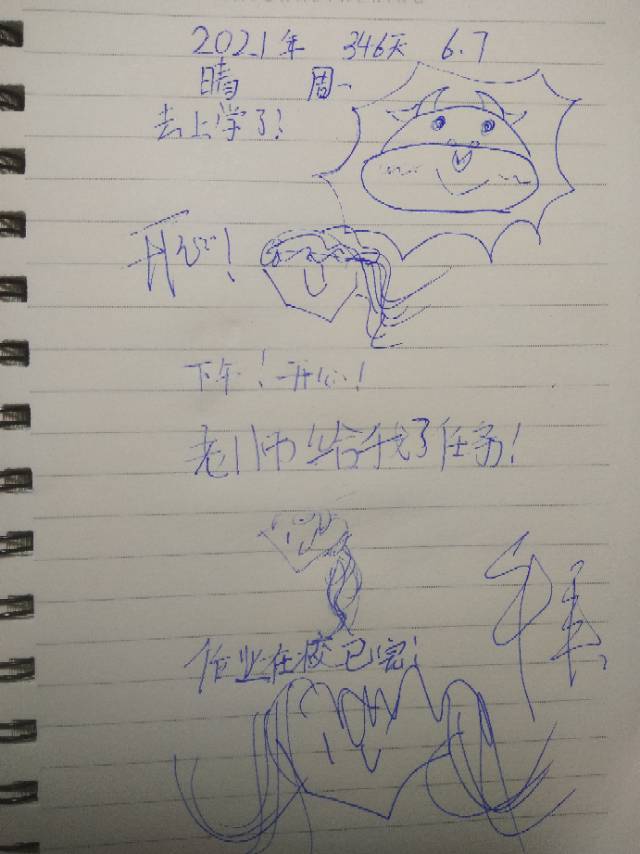 2021年 346天 6.7
晴 周一
去上学了!
开心!
下午!开心!
老师给我了任务!
作业在校已完!